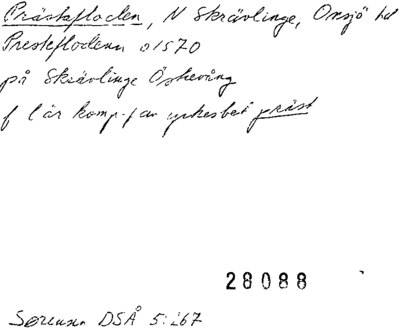 Prästafloden, N Skrävlinge, Onsjö hd
Prestefloden 01570
på Skrävlinge Östervång
f l är komp.f av yrkesbet präst
28088
Sørensen DSÅ 5:267